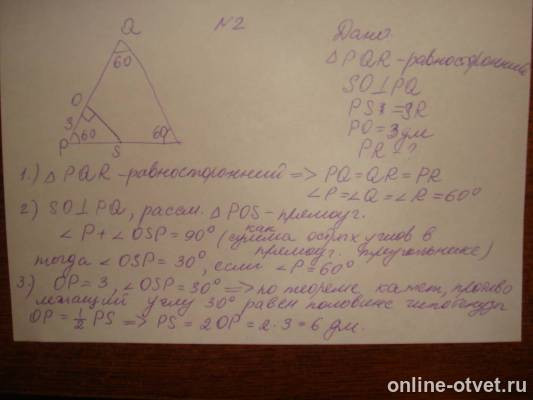 Q
N2
Дано
60
△PQR-равносторонний
SO⊥PQ
O
PS=SR
3
PO=3дм
P 60
S
60
PR-?
1.) △PQR-равносторонний => PQ=QR=PR
∠P=∠Q=∠R=60°
2) SO⊥PQ, рассм. △POS-прямоуг.
∠P+∠OSP=90° (как сумма острых углов в
прямоуг. треугольнике)
тогда ∠OSP=30°, если ∠P=60°
3.) OP=3, ∠OSP=30° => по теореме катет, противо
лежащий углу 30° равен половине гипотенузы
OP=1/2 PS => PS=2OP=2·3=6 дм.
online-otvet.ru